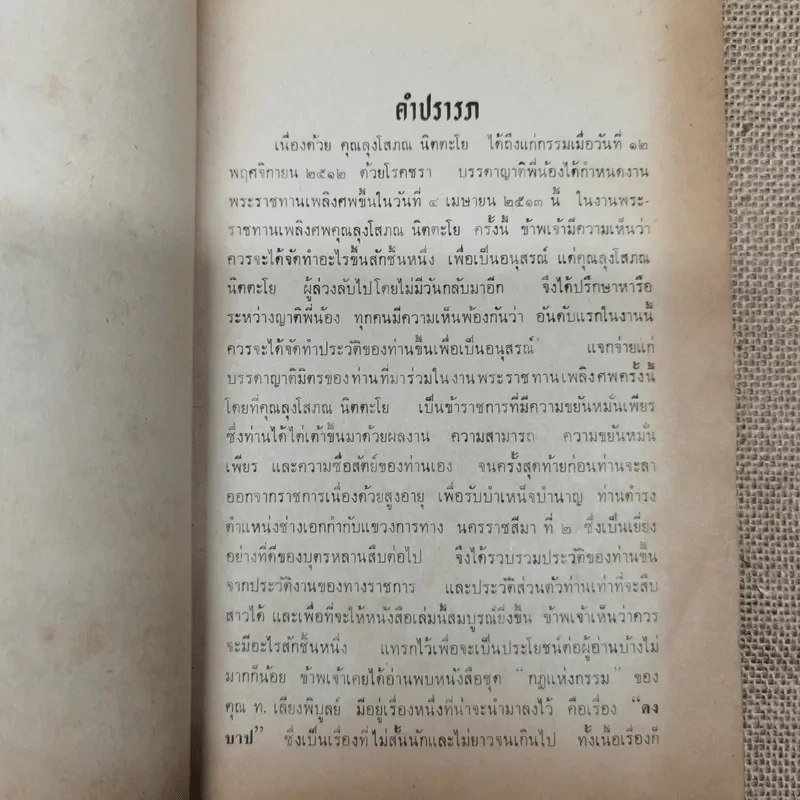 คำปรารภ
เนื่องด้วย คุณลุงโสภณ นิตตะโย ได้ถึงแก่กรรมเมื่อวันที่ ๑๒
พฤศจิกายน ๒๕๑๒ ด้วยโรคชรา บรรดาญาติพี่น้องได้กำหนดงาน
พระราชทานเพลิงศพขึ้นในวันที่ ๔ เมษายน ๒๕๑๓ นี้ ในงานพระ-
ราชทานเพลิงศพคุณลุงโสภณ นิตตะโย ครั้งนี้ ข้าพเจ้ามีความเห็นว่า
ควรจะได้จัดทำอะไรขึ้นสักชิ้นหนึ่ง เพื่อเป็นอนุสรณ์ แด่คุณลุงโสภณ
นิตตะโย ผู้ล่วงลับไปโดยไม่มีวันกลับมาอีก จึงได้ปรึกษาหารือ
ระหว่างญาติพี่น้อง ทุกคนมีความเห็นพ้องกันว่า อันดับแรกในงานนี้
ควรจะได้จัดทำประวัติของท่านขึ้นเพื่อเป็นอนุสรณ์ แจกจ่ายแก่
บรรดาญาติมิตรของท่านที่มาร่วมในงานพระราชทานเพลิงศพครั้งนี้
โดยที่คุณลุงโสภณ นิตตะโย เป็นข้าราชการที่มีความขยันหมั่นเพียร
ซึ่งท่านได้ไต่เต้าขึ้นมาด้วยผลงาน ความสามารถ ความขยันหมั่น
เพียร และความซื่อสัตย์ของท่านเอง จนครั้งสุดท้ายก่อนท่านจะลา
ออกจากราชการเนื่องด้วยสูงอายุ เพื่อรับบำเหน็จบำนาญ ท่านดำรง
ตำแหน่งช่างเอกกำกับแขวงการทาง นครราชสีมา ที่ ๒ ซึ่งเป็นเยี่ยง
อย่างที่ดีของบุตรหลานสืบต่อไป จึงได้รวบรวมประวัติของท่านขึ้น
จากประวัติงานของทางราชการ และประวัติส่วนตัวท่านเท่าที่จะสืบ
สาวได้ และเพื่อที่จะให้หนังสือเล่มนี้สมบูรณ์ยิ่งขึ้น ข้าพเจ้าเห็นว่าควร
จะมีอะไรสักชิ้นหนึ่ง แทรกไว้เพื่อจะเป็นประโยชน์ต่อผู้อ่านบ้างไม่
มากก็น้อย ข้าพเจ้าเคยได้อ่านพบหนังสือชุด "กฎแห่งกรรม" ของ
คุณ ท. เลียงพิบูลย์ มีอยู่เรื่องหนึ่งที่น่าจะนำมาลงไว้ คือเรื่อง "ดง
บาป" ซึ่งเป็นเรื่องที่ไม่สั้นนักและไม่ยาวจนเกินไป ทั้งเนื้อเรื่องก็